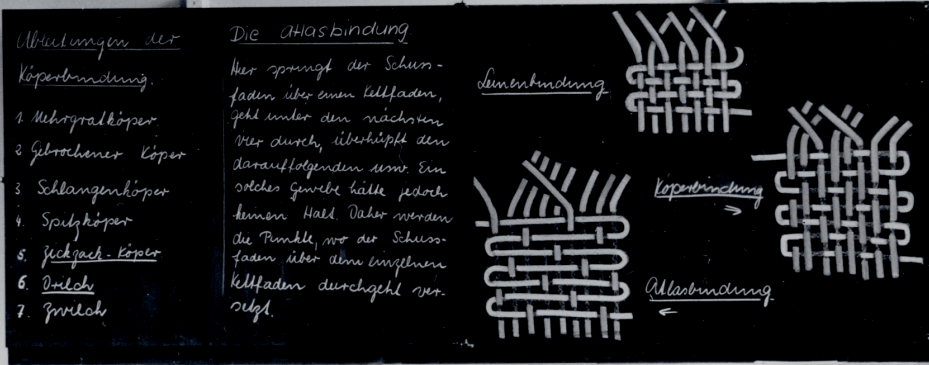 Ableitungen der
Köperbindung.
1. Mehrgratköper
2. Gebrochener Köper
3. Schlangenköper
4. Spitzköper
5. Zickzack-Köper
6. Drilch
7. Zwilch
Die Atlasbindung
Hier springt der Schuss-
faden über einen Kettfaden,
geht unter den nächsten
vier durch, überhüpft den
darauffolgenden usw. Ein
solches Gewebe hätte jedoch
keinen Halt. Daher werden
die Punkte, wo der Schuss-
faden über dem einzelnen
Kettfaden durchgeht ver-
setzt.
Leinenbindung
Köperbindung
Atlasbindung